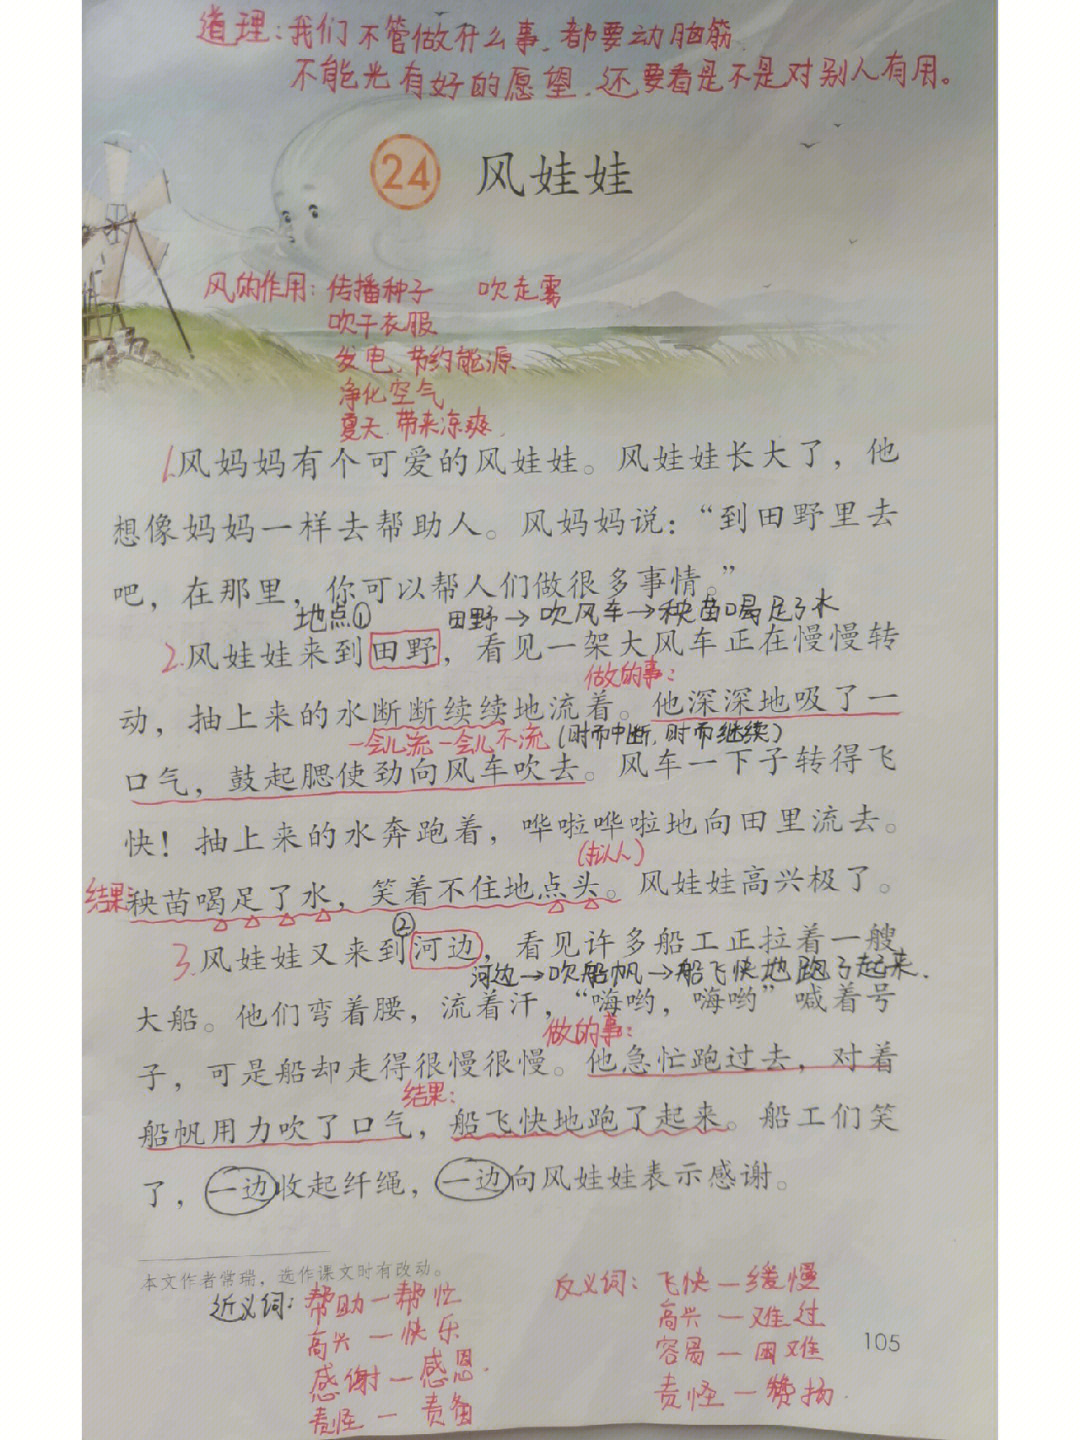 道理：我们不管做什么事，都要动脑筋，
不能光有好的愿望，还要看是不是对别人有用。
24 风娃娃
风的作用：传播种子 吹走雾
吹干衣服
发电，节约能源
净化空气
夏天，带来凉爽，
1.风妈妈有个可爱的风娃娃。风娃娃长大了，他
想像妈妈一样去帮助人。风妈妈说：“到田野里去
吧，在那里，你可以帮人们做很多事情。”
地点① 田野→吹风车→秧苗喝足了水
2.风娃娃来到田野，看见一架大风车正在慢慢转
做的事：
动，抽上来的水断断续续地流着。他深深地吸了一
一会儿流一会儿不流（时而中断，时而继续）
口气，鼓起腮使劲向风车吹去。风车一下子转得飞
快！抽上来的水奔跑着，哗啦哗啦地向田里流去。
（拟人）
结果 秧苗喝足了水，笑着不住地点头。风娃娃高兴极了。
②
3.风娃娃又来到河边，看见许多船工正拉着一艘
河边→吹船帆→船飞快地跑了起来.
大船。他们弯着腰，流着汗，“嗨哟，嗨哟”喊着号
做的事：
子，可是船却走得很慢很慢。他急忙跑过去，对着
结果：
船帆用力吹了口气，船飞快地跑了起来。船工们笑
了，一边收起纤绳，一边向风娃娃表示感谢。
本文作者常瑞，选作课文时有改动。
近义词：帮助—帮忙
高兴—快乐
感谢—感恩.
责怪—责备
反义词：飞快—缓慢
高兴—难过
容易—困难
责怪—赞扬.
105